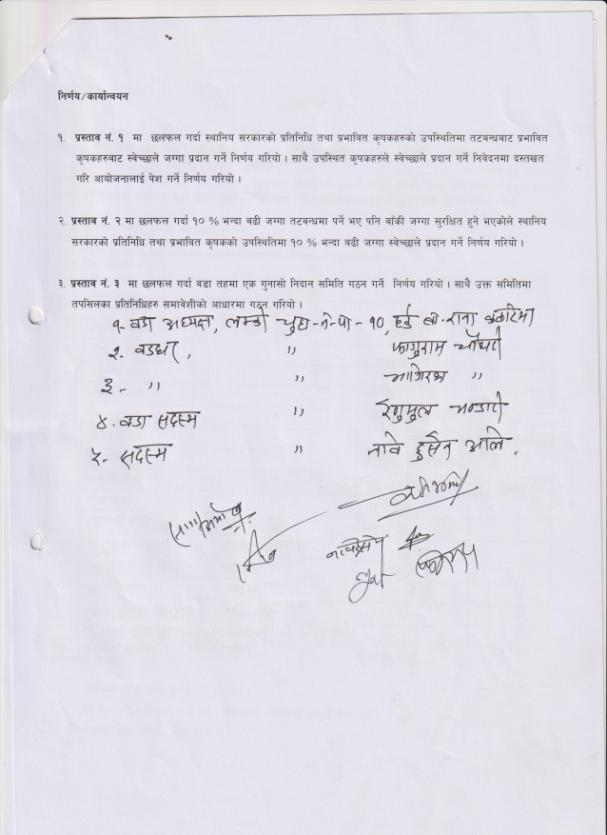 निर्णय/कार्यान्वयन
१. प्रस्ताव नं. १ मा छलफल गर्दा स्थानिय सरकारको प्रतिनिधि तथा प्रभावित कृषकहरुको उपस्थितिमा तटबन्धबाट प्रभावित
कृषकहरुबाट स्वेच्छाले जग्गा प्रदान गर्ने निर्णय गरियो । साथै उपस्थित कृषकहरुले स्वेच्छाले प्रदान गर्ने निवेदनमा दस्तखत
गरि आयोजनालाई पेश गर्ने निर्णय गरियो ।
२. प्रस्ताव नं. २ मा छलफल गर्दा १० % भन्दा बढी जग्गा तटबन्धमा पर्ने भए पनि बाँकी जग्गा सुरक्षित हुने भएकोले स्थानिय
सरकारको प्रतिनिधि तथा प्रभावित कृषकको उपस्थितिमा १० % भन्दा बढी जग्गा स्वेच्छाले प्रदान गर्ने निर्णय गरियो ।
३. प्रस्ताव नं. ३ मा छलफल गर्दा वडा तहमा एक गुनासो निदान समिति गठन गर्ने निर्णय गरियो । साथै उक्त समितिमा
तपसिलका प्रतिनिधिहरु समावेशीको आधारमा गठन गरियो ।
१- वडा अध्यक्ष, लम्की चुहा-न-पा - १०,
२. वडघर, ,, फागुराम चौधरी
३- ,, ,, ,,
४. वडा सदस्य ,,
५- सदस्य ,,